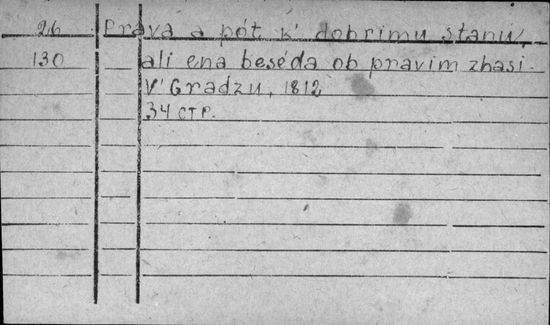 26 Prava a pót k' dobrimu stanu,
130 ali ena beséda ob pravim zhasi.
V' Gradzu, 1812
34 стр.